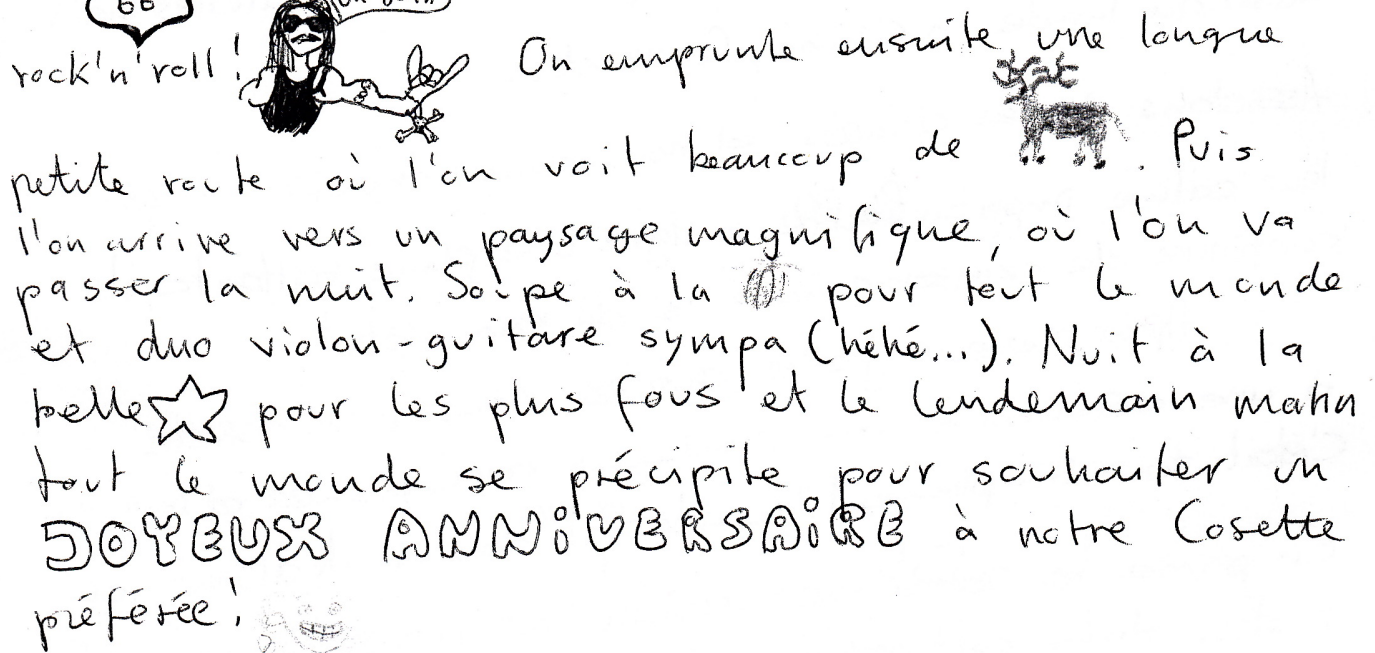 66
rock'n'roll! On emprunte ensuite une longue
petite route où l'on voit beaucoup de . Puis
l'on arrive vers un paysage magnifique, où l'on va
passer la nuit. Soupe à la pour tout le monde
et duo violon-guitare sympa (héhé...). Nuit à la
belle pour les plus fous et le lendemain matin
tout le monde se précipite pour souhaiter un
JOYEUX ANNiVERSAiRE à notre Cosette
préférée!